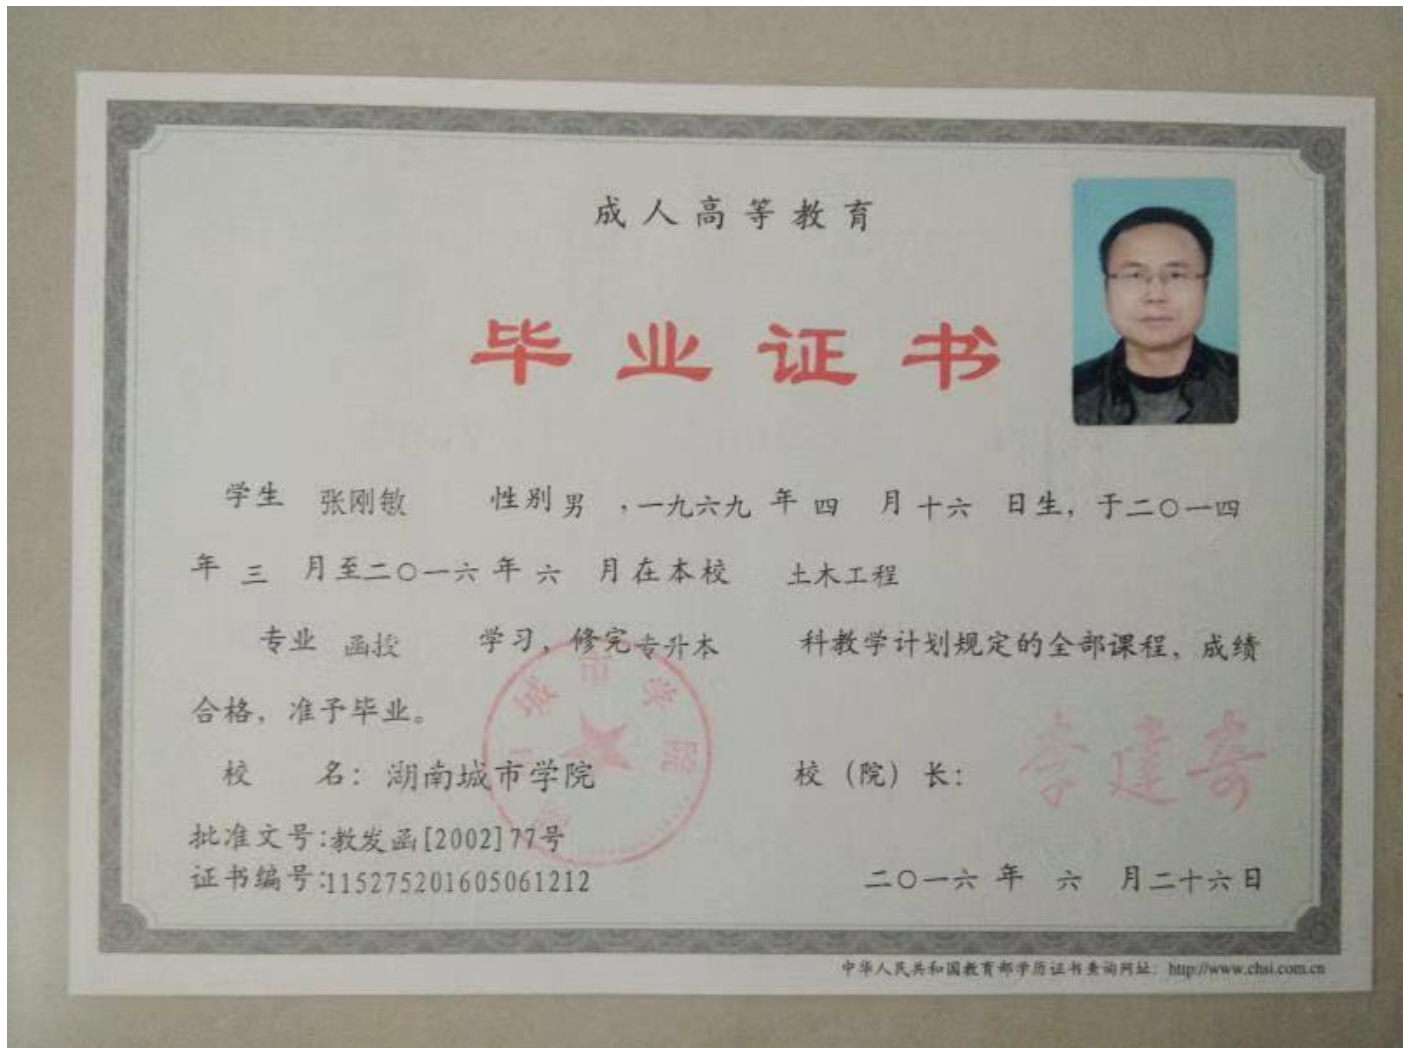 成人高等教育
毕业证书
学生 张刚敏 性别 男 ,一九六九 年 四 月 十六 日生, 于二〇一四
年 三 月至二〇一六 年 六 月在本校 土木工程
专业 函授 学习, 修完专升本 科教学计划规定的全部课程, 成绩
合格, 准予毕业。
校 名: 湖南城市学院 校 (院) 长: 李建奇
批准文号:教发函[2002]77号
证书编号:115275201605061212 二〇一六 年 六 月二十六日
中华人民共和国教育部学历证书查询网址: http://www.chsi.com.cn
城市学院